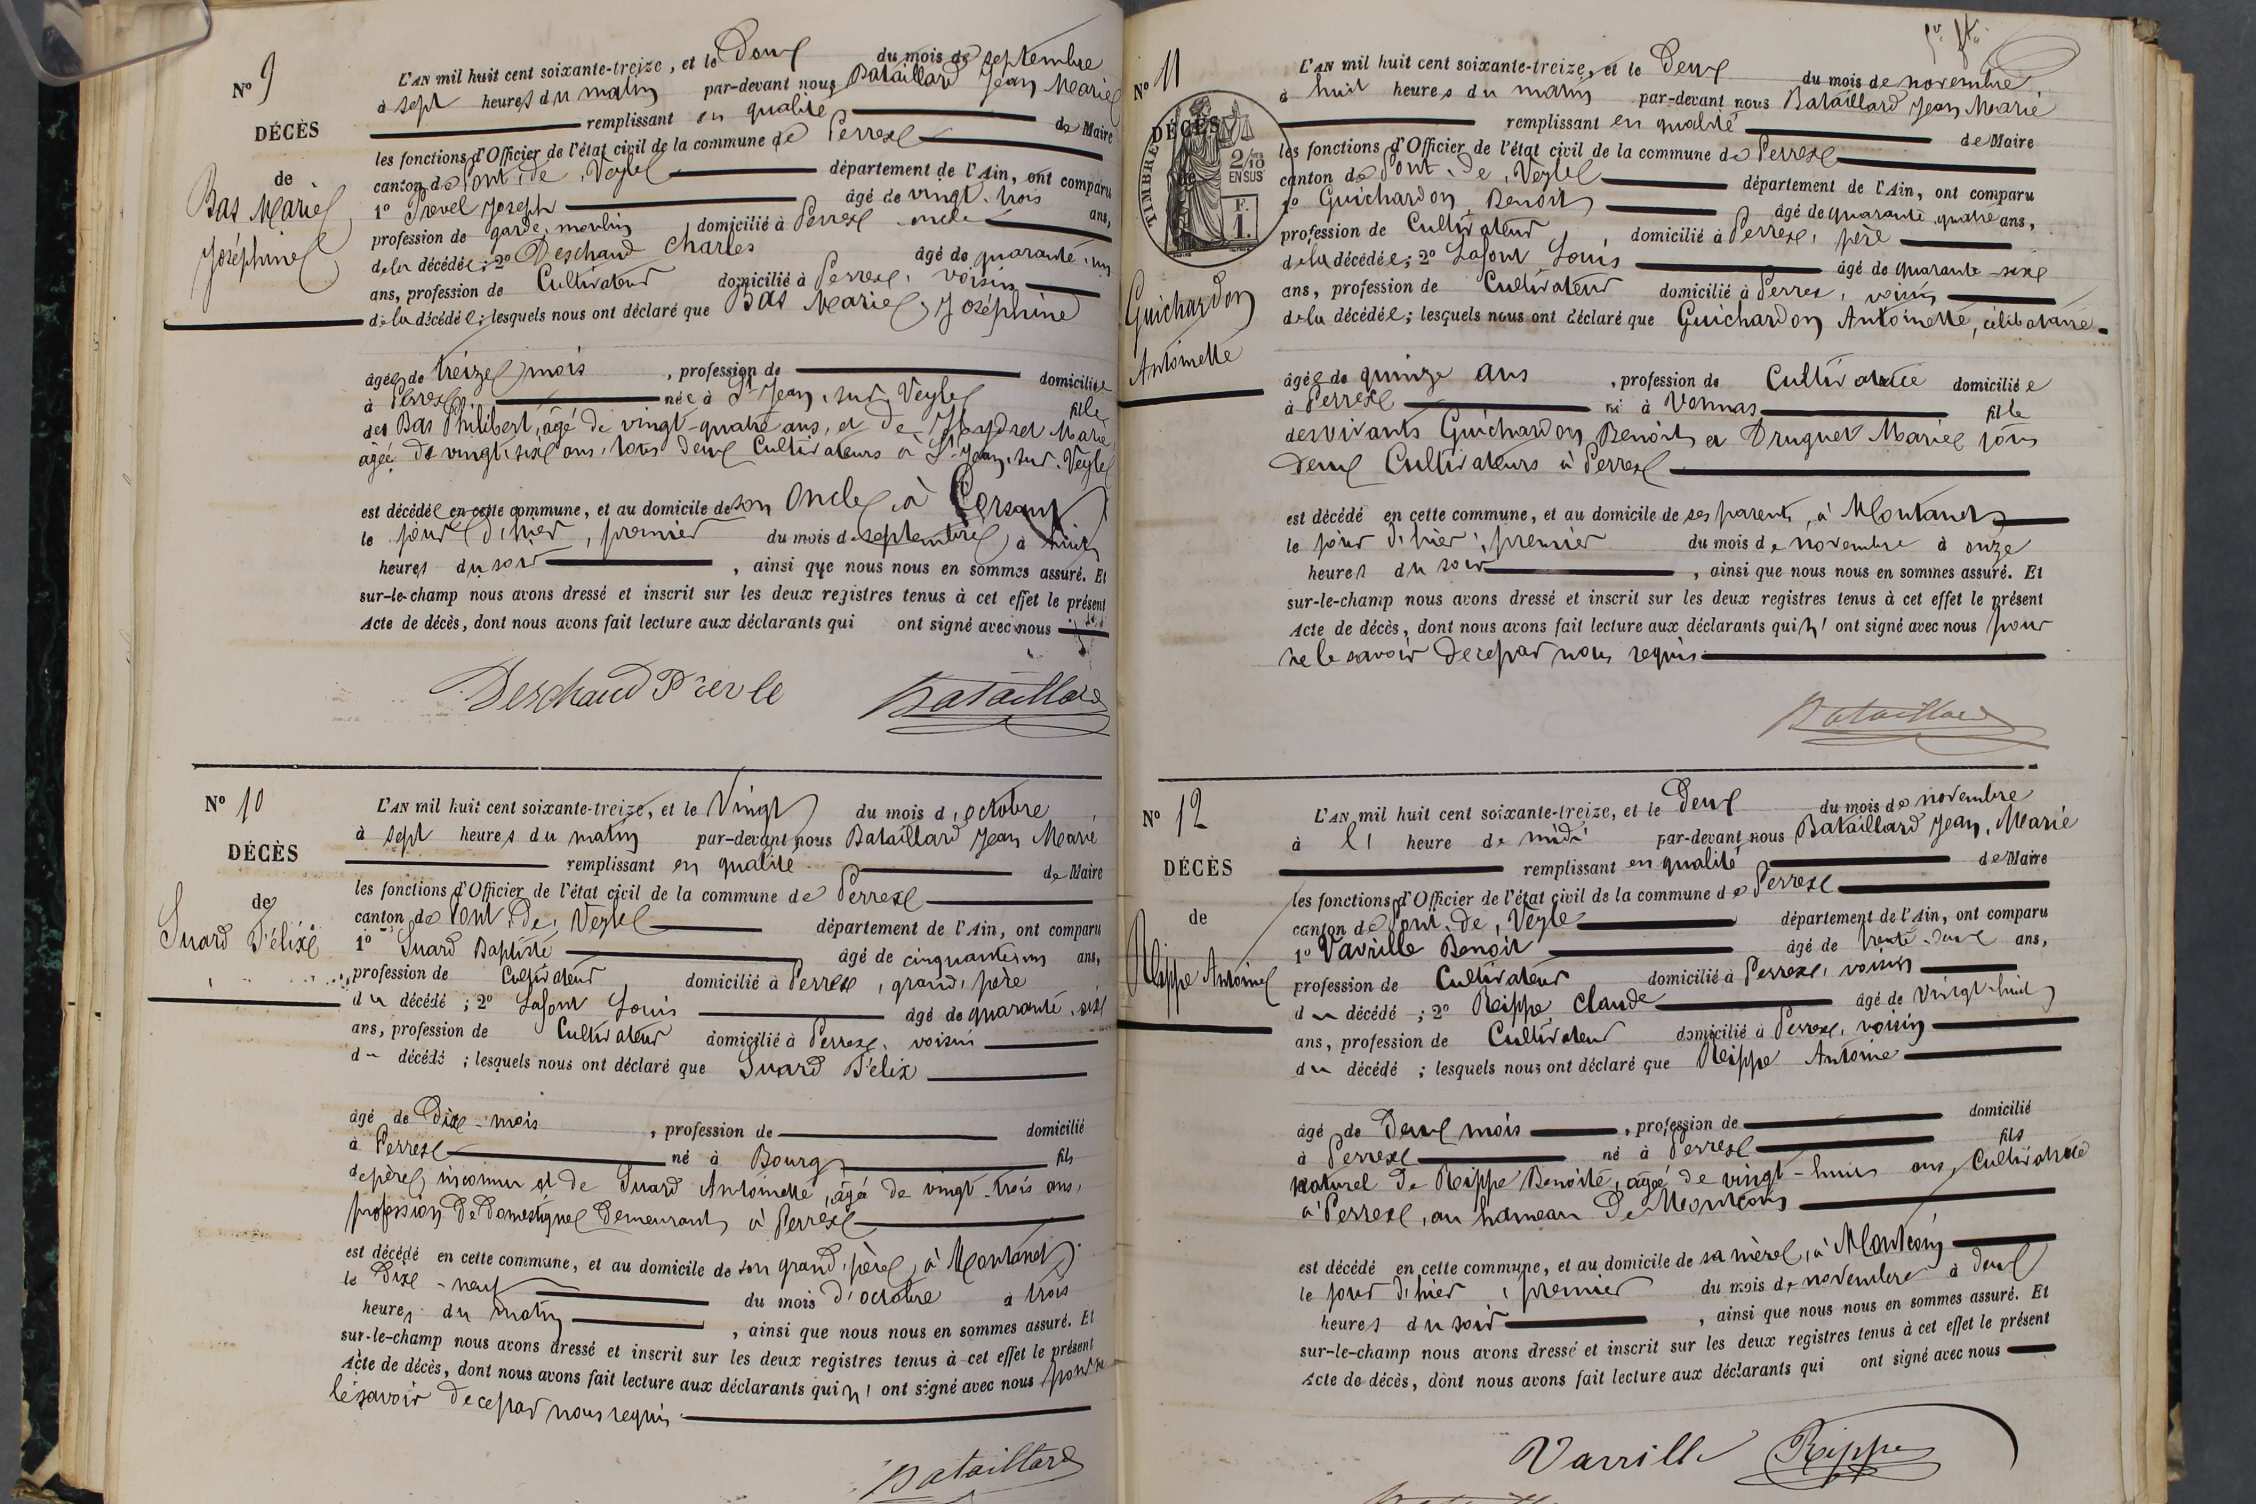 Nº 9
DÉCÈS
de
Bas Marie
Joséphine
L'AN mil huit cent soixante-treize, et le Deux du mois de septembre
à sept heures du matin par-devant nous Bataillard Jean Marie
remplissant en qualité de Maire
les fonctions d'Officier de l'état civil de la commune de Perrex
canton de Pont, de, Veyle département de l'Ain, ont comparu
1º Prevel Joseph âgé de vingt-trois ans,
profession de garde, moulin domicilié à Perrex oncle
de la décédée; 2º Deschaud Charles âgé de quarante, un
ans, profession de Cultivateur domicilié à Perrex, voisin
de la décédée; lesquels nous ont déclaré que Bas Marie, Joséphine
âgée de treize mois, profession de domiciliée
à Perrex née à St Jean, sur, Veyle fille
des Bas Philibert, âgé de vingt-quatre ans, et de Marie
âgée de vingt, six ans, tous deux Cultivateurs à St Jean, sur, Veyle
est décédée en cette commune, et au domicile de son oncle, à Corsant
le jour d'hier, premier du mois de septembre, à huit
heures du soir, ainsi que nous nous en sommes assuré. Et
sur-le-champ nous avons dressé et inscrit sur les deux registres tenus à cet effet le présent
Acte de décès, dont nous avons fait lecture aux déclarants qui ont signé avec nous
Deschaud Bataillard
Nº 10
DÉCÈS
de
Suard Félix
L'AN mil huit cent soixante-treize, et le Vingt du mois d'octobre
à sept heures du matin par-devant nous Bataillard Jean Marie
remplissant en qualité de Maire
les fonctions d'Officier de l'état civil de la commune de Perrex
canton de Pont, De, Veyle département de l'Ain, ont comparu
1º Suard Baptiste âgé de cinquante, un ans,
profession de Cultivateur domicilié à Perrex, grand, père
du décédé; 2º Lafont Louis âgé de quarante, six
ans, profession de Cultivateur domicilié à Perrex, voisin
du décédé; lesquels nous ont déclaré que Suard Félix
âgé de Dix-mois, profession de domicilié
à Perrex né à Bourg fils
de père, inconnu et de Suard Antoinette, âgée de vingt-trois ans,
profession De Domestique Demeurant à Perrex
est décédé en cette commune, et au domicile de son grand, père, à Montanet
le Dix-neuf du mois d'octobre à trois
heures du matin, ainsi que nous nous en sommes assuré. Et
sur-le-champ nous avons dressé et inscrit sur les deux registres tenus à cet effet le présent
Acte de décès, dont nous avons fait lecture aux déclarants qui n'ont signé avec nous pour ne
le savoir de ce par nous requis
Bataillard
Nº 11
DÉCÈS
de
TIMBRE
2/10 EN SUS
F. 1.
Guichardon
Antoinette
L'AN mil huit cent soixante-treize, et le Deux du mois de novembre
à huit heures du matin par-devant nous Bataillard Jean Marie
remplissant en qualité de Maire
les fonctions d'Officier de l'état civil de la commune de Perrex
canton de Pont, De, Veyle département de l'Ain, ont comparu
1º Guichardon Benoit âgé de quarante quatre ans,
profession de Cultivateur domicilié à Perrex, père
de la décédée; 2º Lafont Louis âgé de quarante-six
ans, profession de Cultivateur domicilié à Perrex, voisin
de la décédée; lesquels nous ont déclaré que Guichardon Antoinette, célibataire
âgée de quinze ans, profession de Cultivatrice domiciliée
à Perrex né à Vonnas fille
des vivants Guichardon Benoit et Druguet Marie tous
deux Cultivateurs à Perrex
est décédé en cette commune, et au domicile de ses parents, à Montanet
le jour d'hier, premier du mois de novembre à onze
heures du soir, ainsi que nous nous en sommes assuré. Et
sur-le-champ nous avons dressé et inscrit sur les deux registres tenus à cet effet le présent
Acte de décès, dont nous avons fait lecture aux déclarants qui n'ont signé avec nous pour
ne le savoir de ce par nous requis
Bataillard
Nº 12
DÉCÈS
de
Rippe Antoine
L'AN mil huit cent soixante-treize, et le Deux du mois de novembre
à l' heure de midi par-devant nous Bataillard Jean, Marie
remplissant en qualité de Maire
les fonctions d'Officier de l'état civil de la commune de Perrex
canton de Pont, de, Veyle département de l'Ain, ont comparu
1º Vavrille Benoit âgé de trente-deux ans,
profession de Cultivateur domicilié à Perrex, voisin
du décédé; 2º Rippe Claude âgé de Vingt-huit
ans, profession de Cultivateur domicilié à Perrex, voisin
du décédé; lesquels nous ont déclaré que Rippe Antoine
âgé de Deux mois, profession de domicilié
à Perrex né à Perrex fils
naturel de Rippe Benoîte, âgée de vingt-huit ans, Cultivatrice
à Perrex, au hameau De Montcoin
est décédé en cette commune, et au domicile de sa mère, à Montcoin
le jour d'hier, premier du mois de novembre à deux
heures du soir, ainsi que nous nous en sommes assuré. Et
sur-le-champ nous avons dressé et inscrit sur les deux registres tenus à cet effet le présent
Acte de décès, dont nous avons fait lecture aux déclarants qui ont signé avec nous
Vavrille Rippe